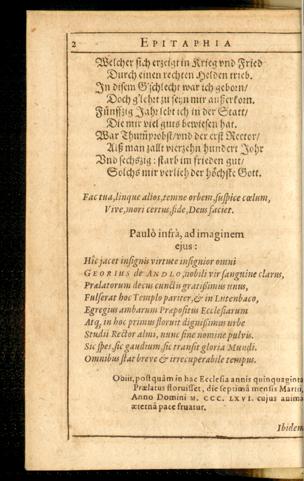 2 EPITAPHIA
Welcher sich erzeigt in Krieg vnd Fried
Durch einen rechten Helden trieb.
In disem G'schlecht war ich geborn/
Doch g'lehrt zu seyn mir außerkorn.
Fünffzig Jahr lebt ich in der Statt/
Die mir viel guts bewiesen hat.
War Thumprobst/vnd der erst Rector/
Alß man zallt vierzehn hundert Johr
Vnd sechszig: starb im frieden gut/
Solchs mir verlich der höchste Gott.
Fac tua, linque alios, temne orbem, suspice cœlum,
Vive, mori certus, fide, Deus faciet.
Paulò infrà, ad imaginem
ejus:
Hîc jacet insignis virtute insignior omni
GEORIUS de ANDLO, nobili vir sanguine clarus,
Prælatorum decus cunctis gratissimus unus,
Fulserat hoc Templo pariter, & in Lutenbaco,
Egregius ambarum Præpositus Ecclesiarum
Atq, in hoc primus floruit dignissimus urbe
Studii Rector almi, nunc sine nomine pulvis.
Sic spes, sic gaudium, sic transit gloria Mundi.
Omnibus stat breve & irrecuperabile tempus.
Obiit, postquàm in hac Ecclesia annis quinquaginta
Prælatus floruisset, die septimâ mensis Martii,
Anno Domini M. CCC. LXVI. cujus anima
æternâ pace fruatur.
Ibidem